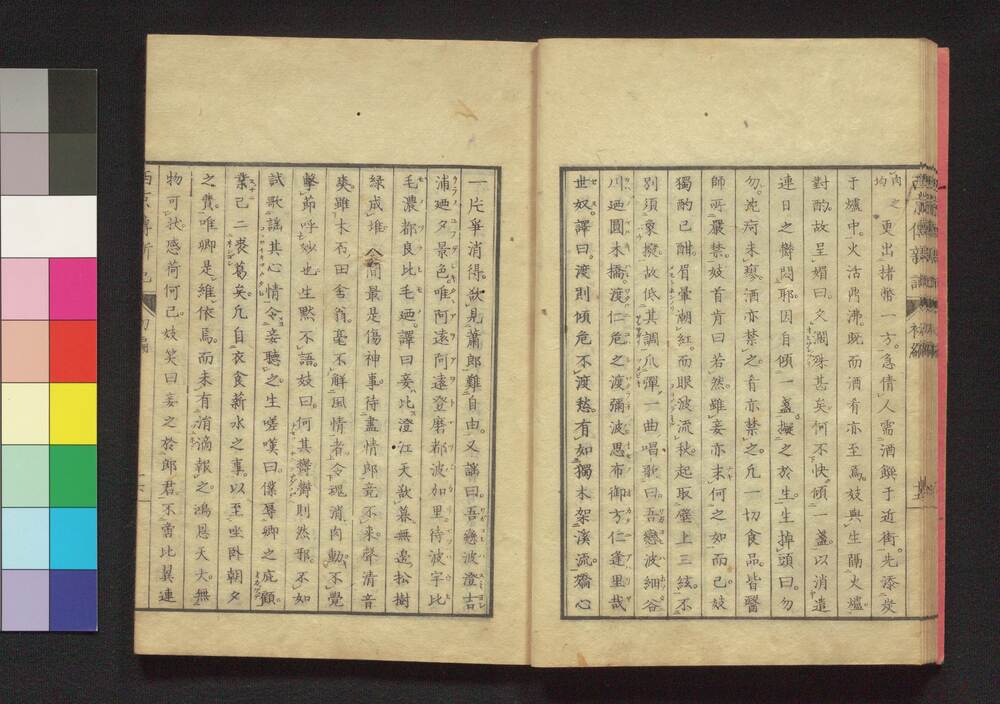 肉之更出楮幣一方。急倩人需酒饌于近街。先添炭
于爐中。火活鼎沸。既而酒肴亦至焉。妓與生隔火爐。
對酌。故呈媚曰。久濶殊甚矣。何不快傾一盞。以消遣
連日之欝悶耶。因自傾一盞。擬之於生。生掉頭曰。勿
勿。沈疴未瘳。酒亦禁之。肴亦禁之。凡一切食品。皆醫
師所嚴禁。妓首肯曰。若然。雖妾亦末何之如而已。妓
獨酌已酣。眉暈潮紅。而眼波流秋。起取壁上三絃。不
別須象撥。故低其調爪彈。一曲唱歌曰。吾戀波細谷
川廼圓木橋。渡仁危之渡彌波思布御方仁逢里哉
世奴。譯曰。渡則傾危不渡愁。有如獨木架溪流。齋心
一片爭消得。欲見蕭郎難自由。又謡曰。吾戀波澄吉
浦廼夕景色。唯阿遠阿遠登磨都波加里待波宇比
毛濃都良比毛廼。譯曰。妾比澄江天欲暮。無邊松樹
緑成堆。人間最是傷神事。待盡情郎竟不來。聲清音
爽。雖木石田舍翁。毫不解風情者。令魂消肉動。不覺
擊節呼妙也。生默不語。妓曰。何其欝欝則然邪。不如
試歌謡其心情。令妾聽之。生嗟嘆曰。僕辱卿之庇顧。
業已二裘葛矣。凡自衣食薪水之事。以至坐卧朝夕
之費。唯卿是維依焉。而未有消滴報之。鴻恩天大。無
物可狀。感荷何已。妓笑曰。妾之於郎君。不啻比翼連
初編